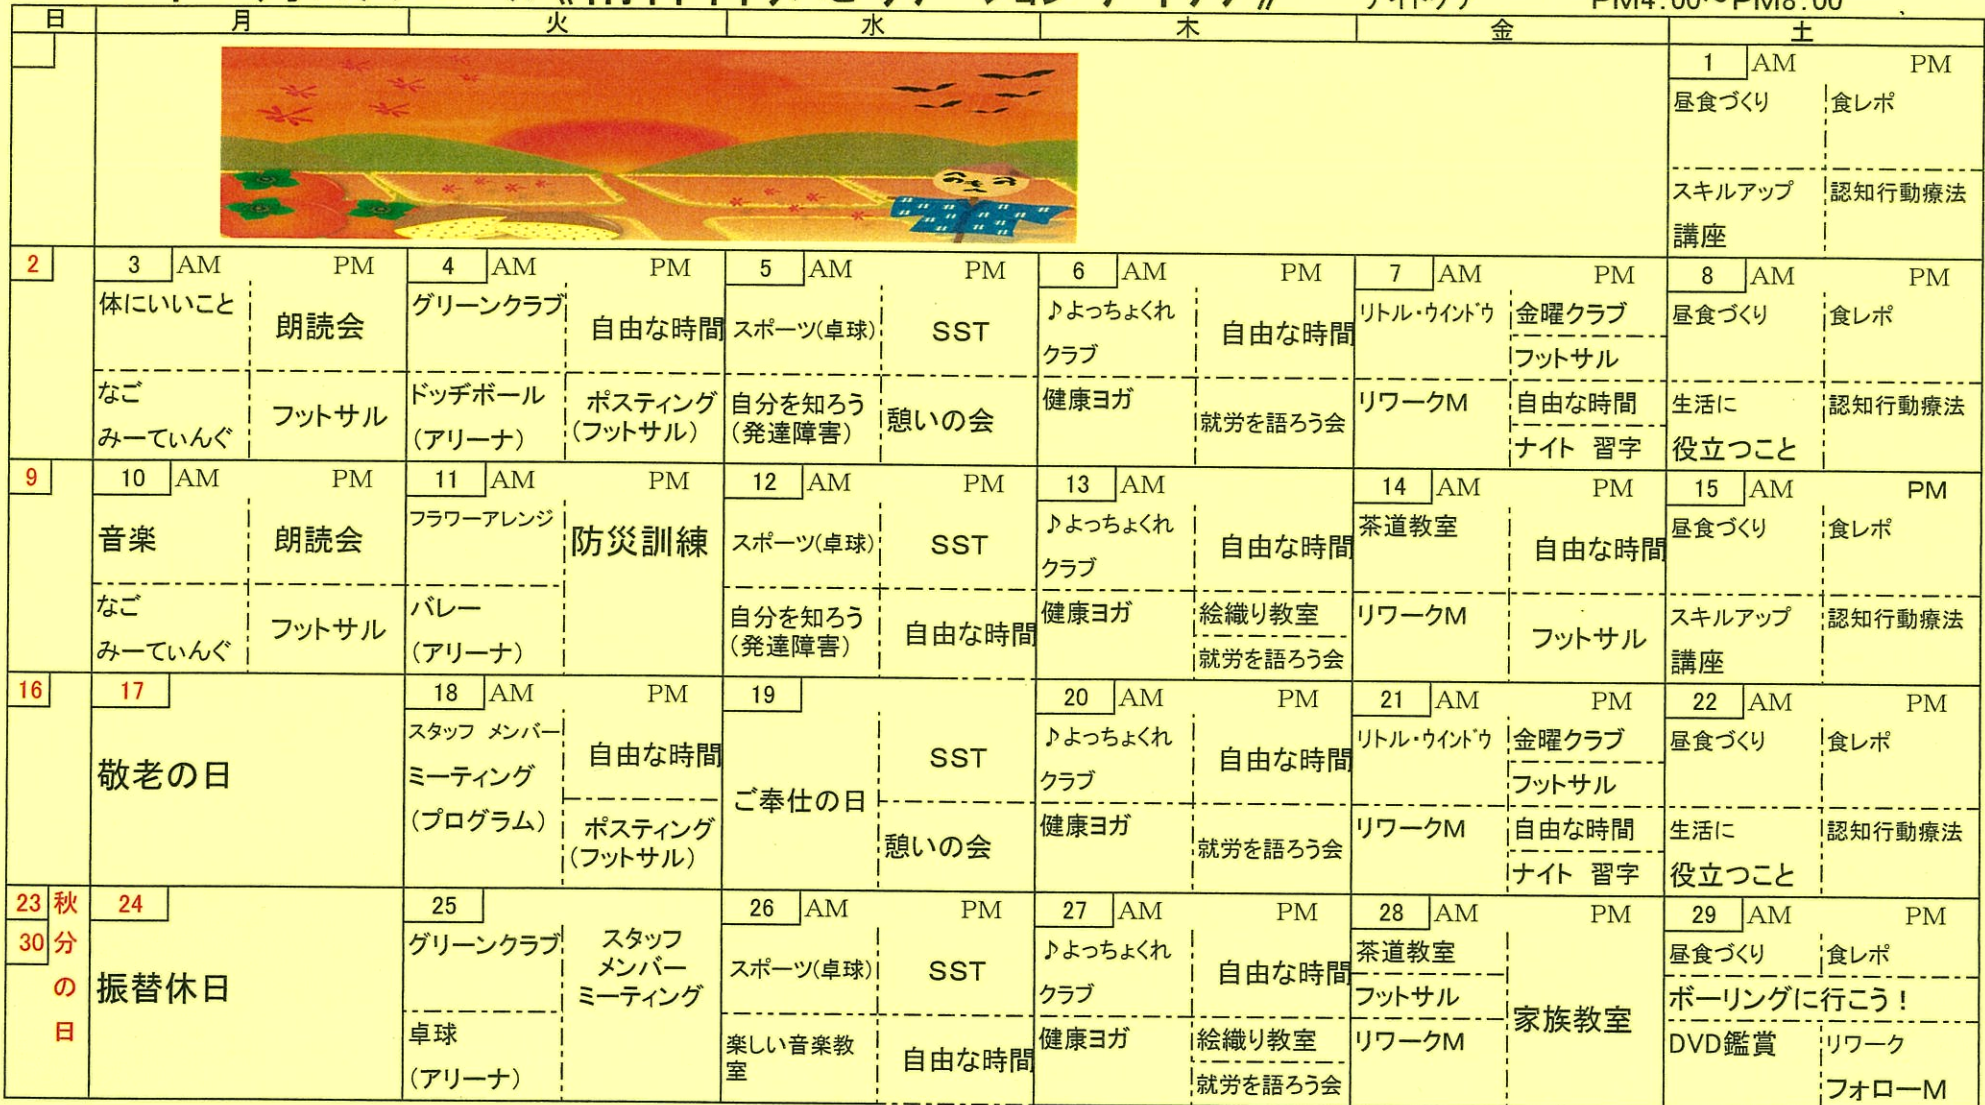 ナイトケア PM4:00～PM8:00
日 月 火 水 木 金 土
1 AM PM
昼食づくり 食レポ
スキルアップ 認知行動療法
講座
2
3 AM PM
体にいいこと 朗読会
なご フットサル
みーてぃんぐ
4 AM PM
グリーンクラブ 自由な時間
ドッヂボール ポスティング
(アリーナ) (フットサル)
5 AM PM
スポーツ(卓球) SST
自分を知ろう 憩いの会
(発達障害)
6 AM PM
♪よっちょくれ 自由な時間
クラブ
健康ヨガ 就労を語ろう会
7 AM PM
リトル・ウインドウ 金曜クラブ
フットサル
リワークM 自由な時間
ナイト 習字
8 AM PM
昼食づくり 食レポ
生活に 認知行動療法
役立つこと
9
10 AM PM
音楽 朗読会
なご フットサル
みーてぃんぐ
11 AM PM
フラワーアレンジ 防災訓練
バレー
(アリーナ)
12 AM PM
スポーツ(卓球) SST
自分を知ろう 自由な時間
(発達障害)
13 AM
♪よっちょくれ 自由な時間
クラブ
健康ヨガ 絵織り教室
就労を語ろう会
14 AM PM
茶道教室 自由な時間
リワークM フットサル
15 AM PM
昼食づくり 食レポ
スキルアップ 認知行動療法
講座
16
17
敬老の日
18 AM PM
スタッフ メンバー 自由な時間
ミーティング
(プログラム) ポスティング
(フットサル)
19
ご奉仕の日 SST
憩いの会
20 AM PM
♪よっちょくれ 自由な時間
クラブ
健康ヨガ 就労を語ろう会
21 AM PM
リトル・ウインドウ 金曜クラブ
フットサル
リワークM 自由な時間
ナイト 習字
22 AM PM
昼食づくり 食レポ
生活に 認知行動療法
役立つこと
23 30 秋分の日
24
振替休日
25
グリーンクラブ スタッフ
メンバー
ミーティング
卓球
(アリーナ)
26 AM PM
スポーツ(卓球) SST
楽しい音楽教 自由な時間
室
27 AM PM
♪よっちょくれ 自由な時間
クラブ
健康ヨガ 絵織り教室
就労を語ろう会
28 AM PM
茶道教室 家族教室
フットサル
リワークM
29 AM PM
昼食づくり 食レポ
ボーリングに行こう!
DVD鑑賞 リワーク
フォローM